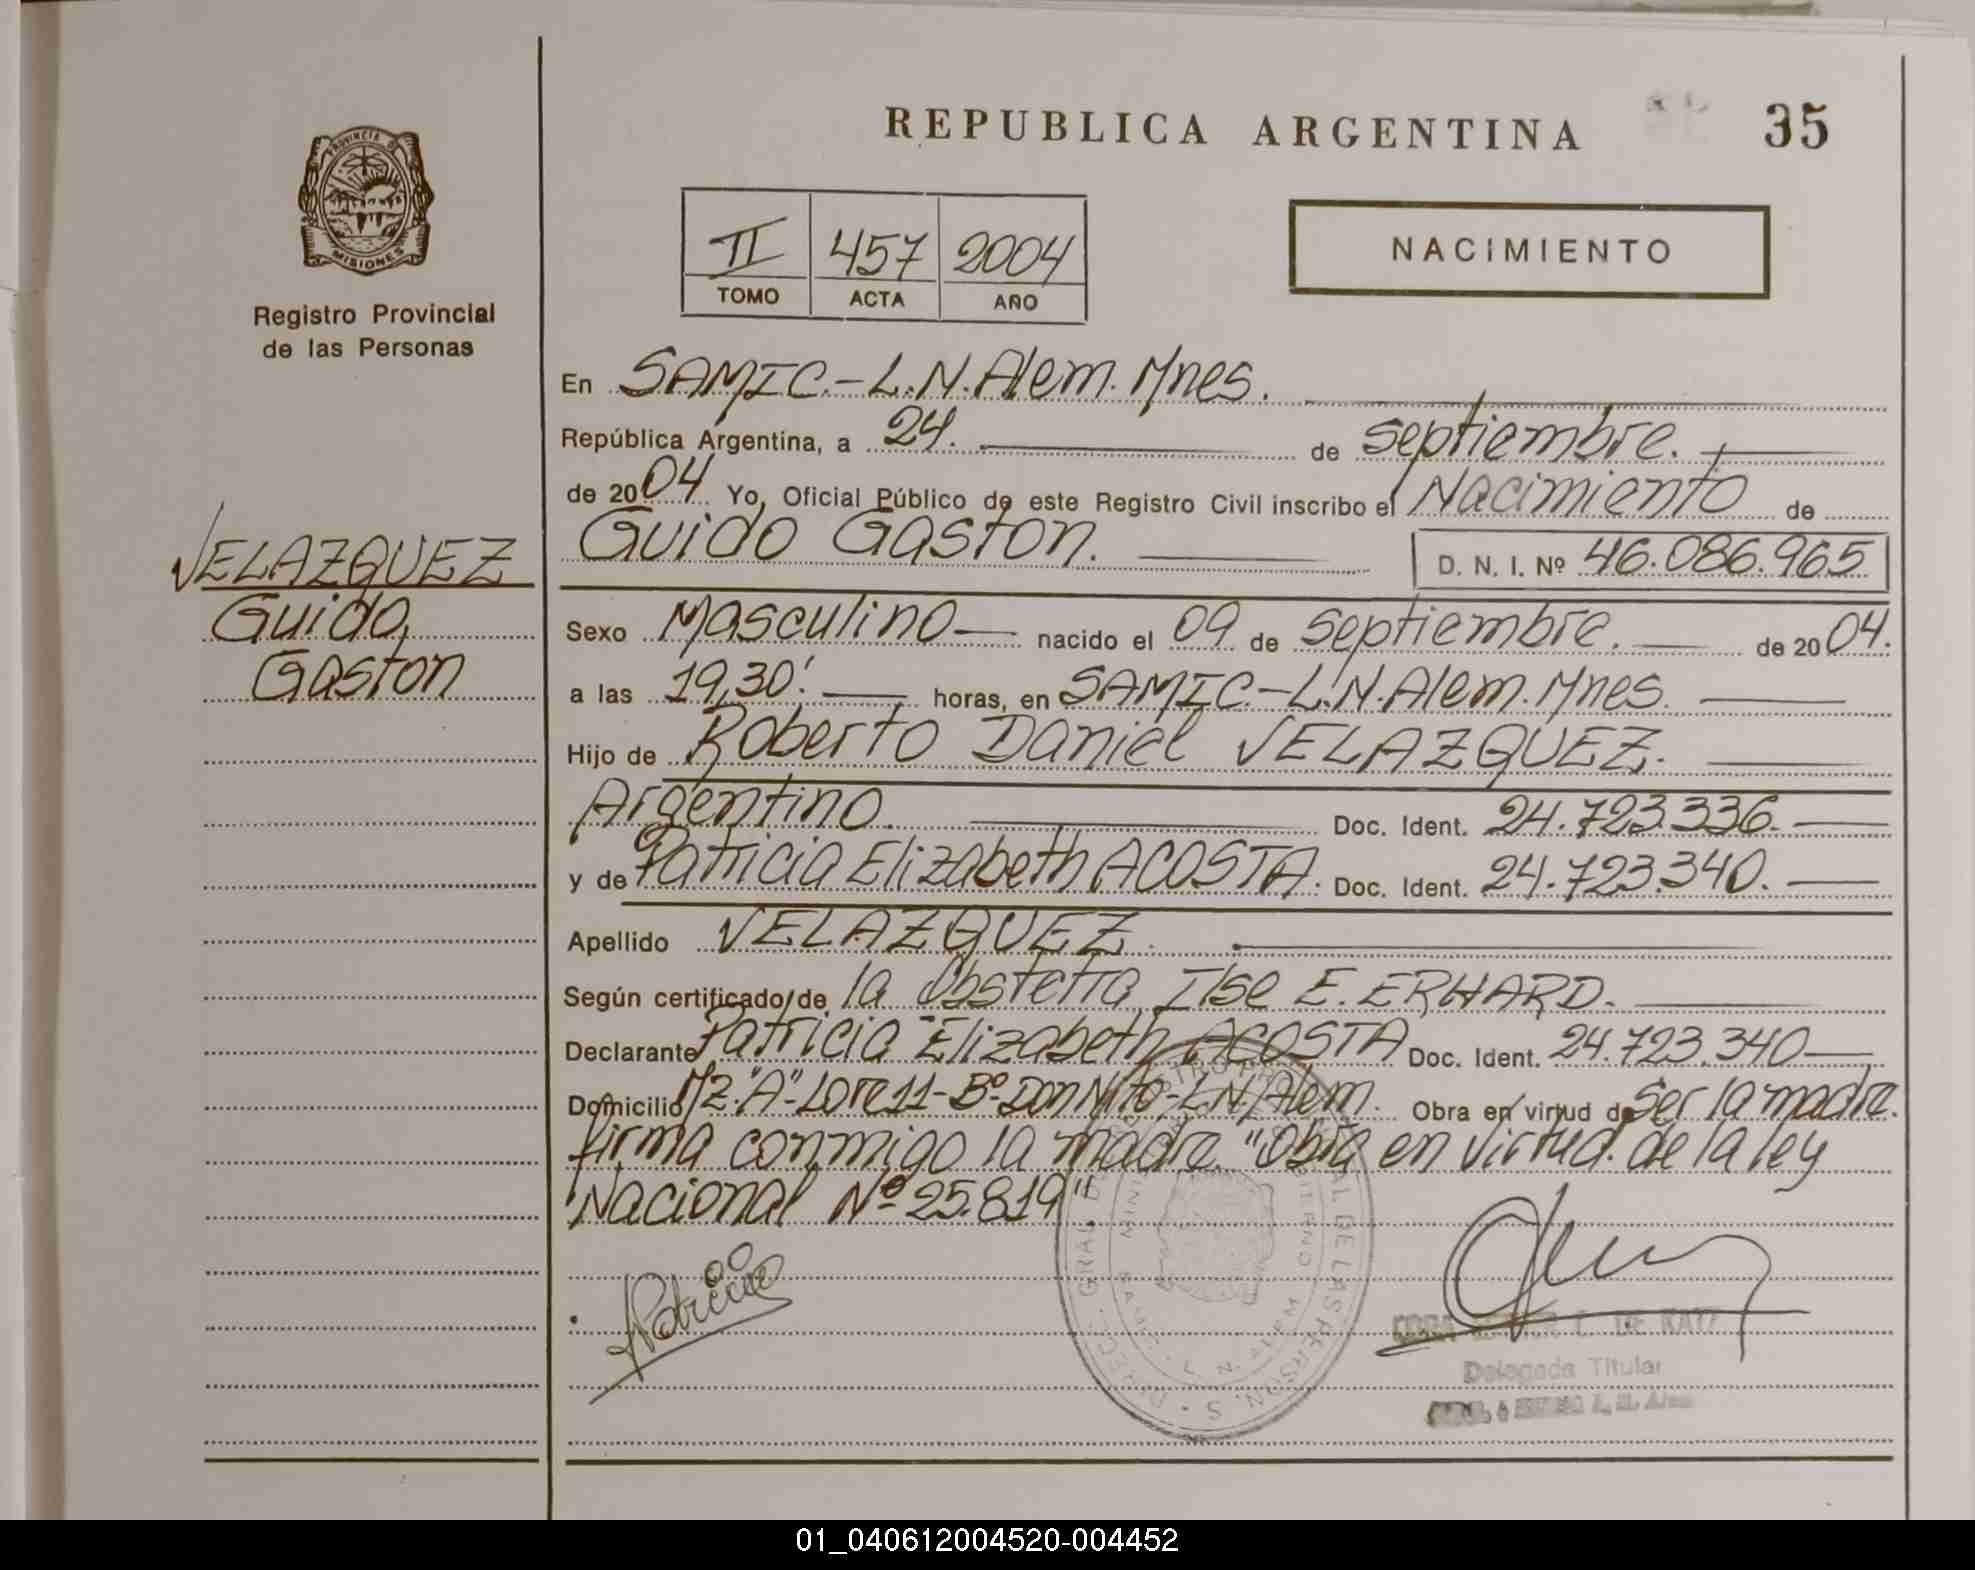 REPUBLICA ARGENTINA
35
PROVINCIA DE
MISIONES
Registro Provincial
de las Personas
II 457 2004
TOMO ACTA AÑO
NACIMIENTO
VELAZQUEZ
Guido,
Gaston
En SAMIC.-L.N.Alem.Mnes.
República Argentina, a 24. de septiembre.
de 2004 Yo, Oficial Público de este Registro Civil inscribo el Nacimiento de
Guido Gaston. D. N. I. Nº 46.086.965
Sexo Masculino nacido el 09 de septiembre. de 2004.
a las 19,30' horas, en SAMIC.-L.N.Alem.Mnes.
Hijo de Roberto Daniel VELAZQUEZ.
Argentino. Doc. Ident. 24.723.336.
y de Patricia Elizabeth ACOSTA. Doc. Ident. 24.723.340.
Apellido VELAZQUEZ.
Según certificado de la Obstetra Ilse E. ERHARD.
Declarante Patricia Elizabeth ACOSTA Doc. Ident. 24.723.340
Domicilio Mz."A"-Lote 11-Bº-Don Nito-L.N.Alem. Obra en virtud de Ser la madre.
firma conmigo la madre. "Obra en virtud. de la ley
Nacional Nº 25.819"
Patricia
DE KATZ
Delegada Titular
01_040612004520-004452